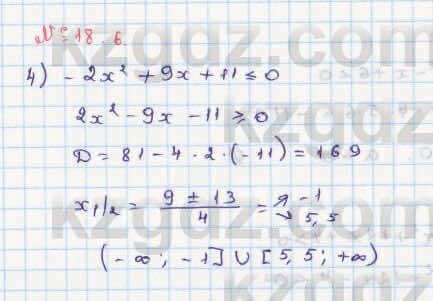 № 18.6.
4) - 2x² + 9x + 11 ≤ 0
2x² - 9x - 11 ≥ 0
D = 81 - 4 · 2 · (-11) = 169
x₁/₂ = (9 ± 13)/4 = → -1 → 5,5
(-∞; -1] ∪ [5,5; +∞)
kzgdz.com